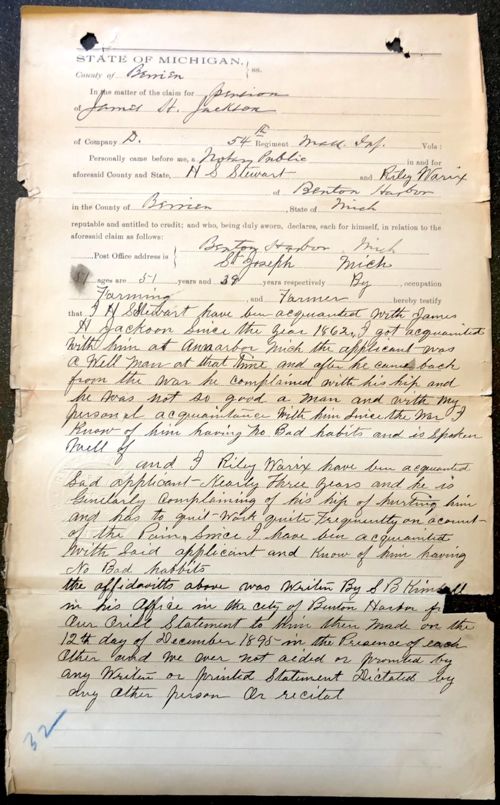 STATE OF MICHIGAN,
County of Berrien } ss.
In the matter of the claim for pension
of James H. Jackson
of Company D. 54th Regiment Mass. Inf. Vols:
Personally came before me, a Notary Public in and for
aforesaid County and State, H S Stewart and Riley Warix
of Benton Harbor
in the County of Berrien, State of Mich
reputable and entitled to credit; and who, being duly sworn, declares, each for himself, in relation to the
aforesaid claim as follows:
Benton Harbor Mich
Post Office address is St Joseph Mich
ages are 51 years and 39 years respectively By, occupation
Farming and Farmer hereby testify
that I H Stewart have ben acquanted with James
H Jackson Since the year 1862, I got acquanted
with him at Annarbor Mich the applicant was
a Well Man at that time and after he came back
from the War he complained with his hip and
he was not so good a man and with my
personal acquaintance With him Since the War I
Know of him having No Bad habits and is Spoken
Well of
and I Riley Warix have ben acquanted
Sad applicant Nearly Three Years and he is
Similarly Complaining of his hip of hurting him
and has to quit Work quite Frequently on acount
of the Pain, Since I have ben acquanted
With Said applicant and Know of him having
No Bad habbits
the affidavitts above was Writen By S B Kim
in his Office in the city of Benton Harbor
Our Oral Statement to him then Made on the
12th day of December 1895 in the Presence of each
Other and we ever not aided or promted by
any Writen or printed Statement Dictated by
any Other person Or recital
32